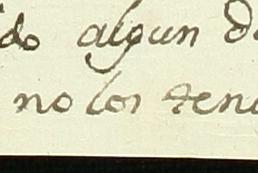 do algun
no los ten